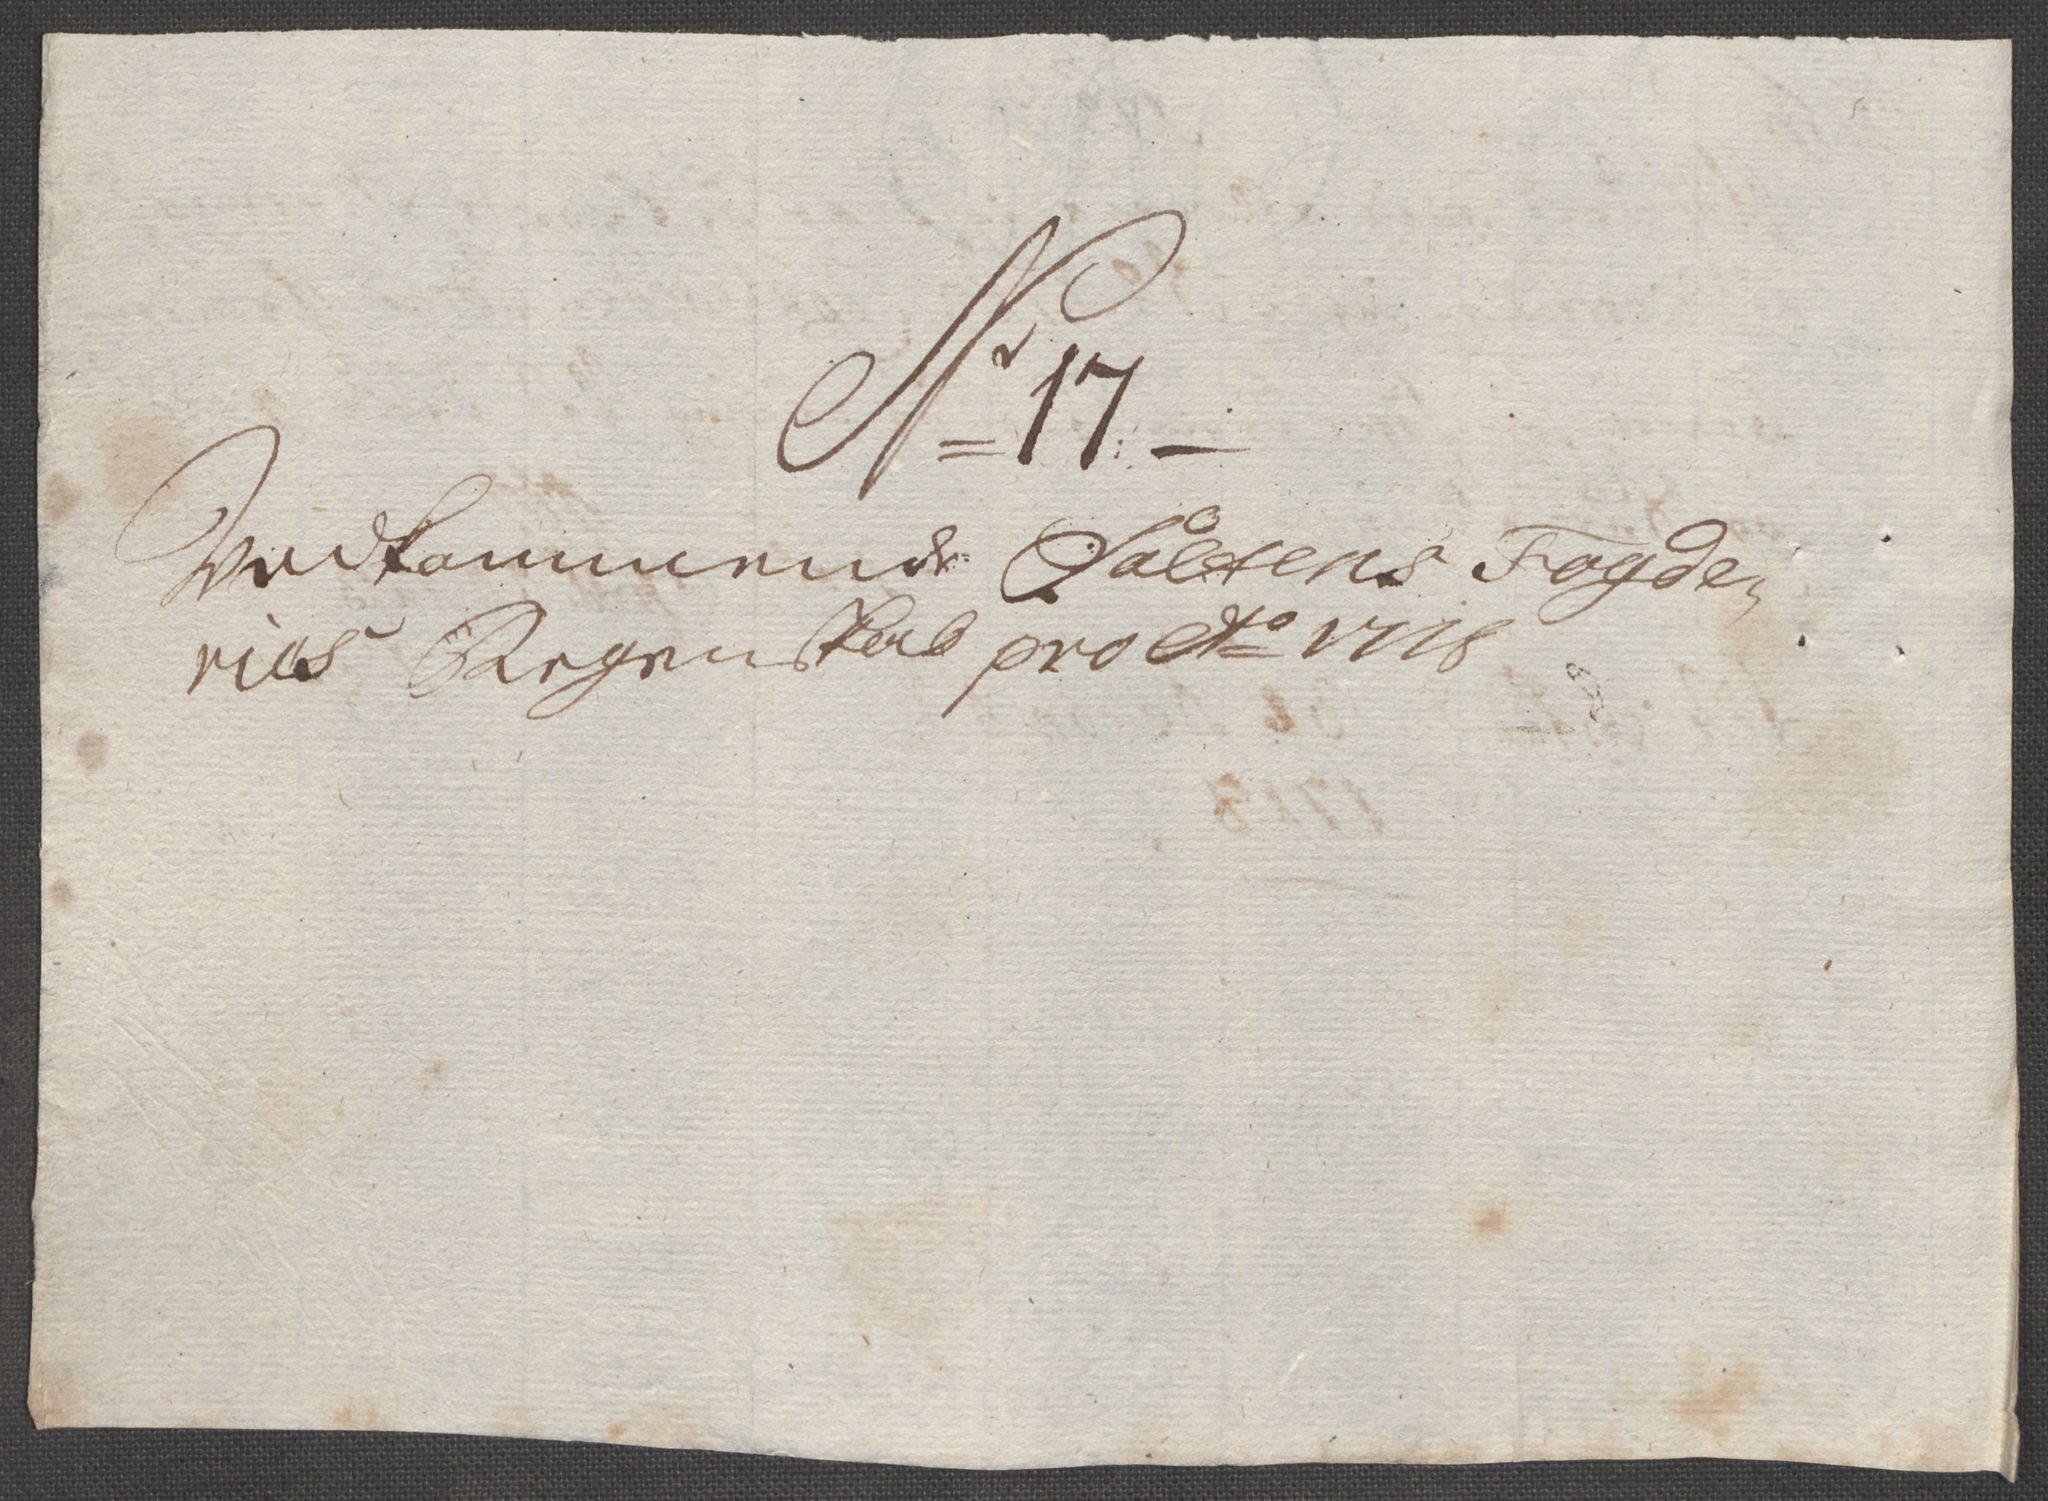 Nr 17 –
Vedkommende Saltens Fogde-
ries Regenskab pro Ao 1718